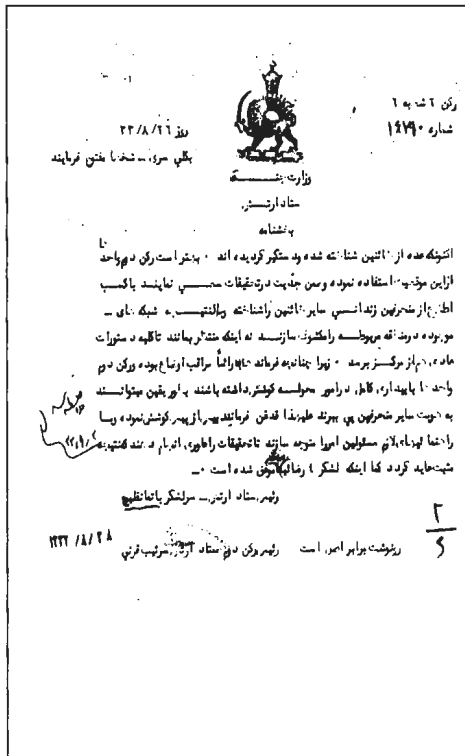 رکن ۲ شعبه ۶
شماره ۱۴۷۹۰
روز ۲۶ / ۸ / ۳۳
بکلی سری ـ شخصا مفتوح فرمایند
وزارت جنگ
ستاد ارتش
بخشنامه
اکنونکه عده از خائنین شناخته شده و دستگیر گردیده اند ۰ بهتر است رکن دوم واحدها
از این موقعیت استفاده نموده و جدیت در تحقیقات نمایند با کسب
اطلاع از منحرفین زندانی سایر خائنین را شناخته و بالنتیجه شبکه های ـ
موجوده در منطقه مربوطه را مکشوف سازند نه اینکه منتظر بمانند تا کلیه دستورات
از مرکز برسد ۰ زیرا چنانچه فرماندهان مراقب اوضاع بوده و رکن دوم
واحدها با پایداری کامل در امور محوله کوشش داشته باشند بطور یقین میتوانند
به هویت سایر منحرفین پی ببرند علیهذا قدغن فرمائید بیش از پیش کوشش نموده و با
راهنمائیهای لازم مسئولین امر را متوجه سازند تا تحقیقات را طوری انجام دهند که نتیجه
مثبت عاید گردد کما اینکه لشگر ۴ رضائیه موفق شده است ۰ـ
رئیس ستاد ارتش ـ سرلشگر باتمانقلیچ
رونوشت برابر اصل است رئیس رکن دوم ستاد ارتش سرتیپ قرنی
۲۸ / ۸ / ۱۳۳۳